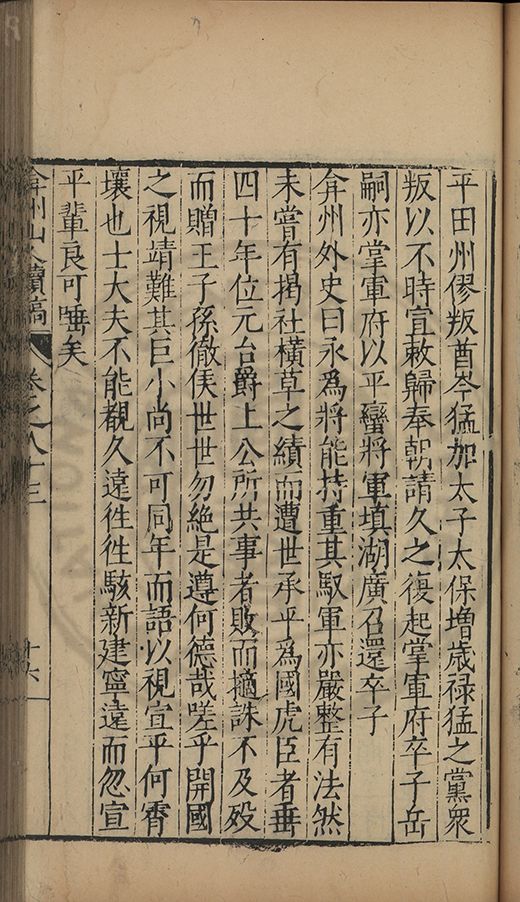 平田州僇叛酋岑猛加太子太保增歲祿猛之黨衆
叛以不時宣敕歸奉朝請久之復起掌軍府卒子岳
嗣亦掌軍府以平蠻將軍填湖廣召還卒子
弇州外史曰永爲將能持重其馭軍亦嚴整有法然
未嘗有揭社橫草之績而遭世承平為國虎臣者垂
四十年位元台爵上公所共事者敗而擿誅不及殁
而贈王子孫徹侯世世勿絕是遵何德哉嗟乎開國
之視靖難其巨小尚不可同年而語以視宣平何霄
壤也士大夫不能覩久遠徃徃駭新建寧遠而忽宣
平輩良可唾矣
弇州山人續稿
卷之八十三
十六